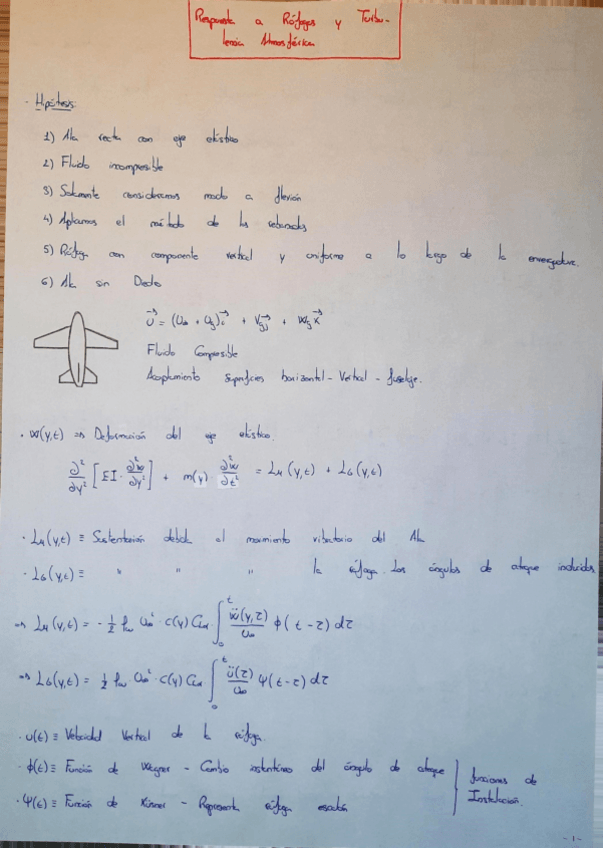 Respuesta a Ráfagas y Turbu-
lencia Atmosférica
· Hipótesis:
1) Ala recta con eje elástico
2) Fluido incompresible
3) Solamente consideramos modo a flexión
4) Aplicamos el método de las rebanadas
5) Ráfaga con componente vertical y uniforme a lo largo de la envergadura.
6) Ala sin Diedro
U⃗ = (U∞ + Ug)i⃗ + Vg j⃗ + Wg k⃗
Fluido Compresible
Acoplamiento Superficies horizontal - Vertical - fuselaje.
· W(y,t) ⇒ Deformación del eje elástico.
∂²/∂y² [EI · ∂²w/∂y²] + m(y) · ∂²w/∂t² = LM(y,t) + LG(y,t)
· LM(y,t) ≡ Sustentación debida al movimiento vibratorio del Ala
· LG(y,t) ≡ " " " la ráfaga. Los ángulos de ataque inducidos
⇒ LM(y,t) = - 1/2 ρ∞ U∞² · C(y) CLα ∫₀ᵗ ẅ(y,τ)/U∞ ϕ(t-τ) dτ
⇒ LG(y,t) = 1/2 ρ∞ U∞² · C(y) CLα ∫₀ᵗ ü(τ)/U∞ Ψ(t-τ) dτ
· u(t) ≡ Velocidad Vertical de la ráfaga.
· ϕ(t) ≡ Función de Wagner - Cambio instantáneo del ángulo de ataque
· Ψ(t) ≡ Función de Küssner - Representa ráfaga escalón
funciones de
Instalación.
- 1 -